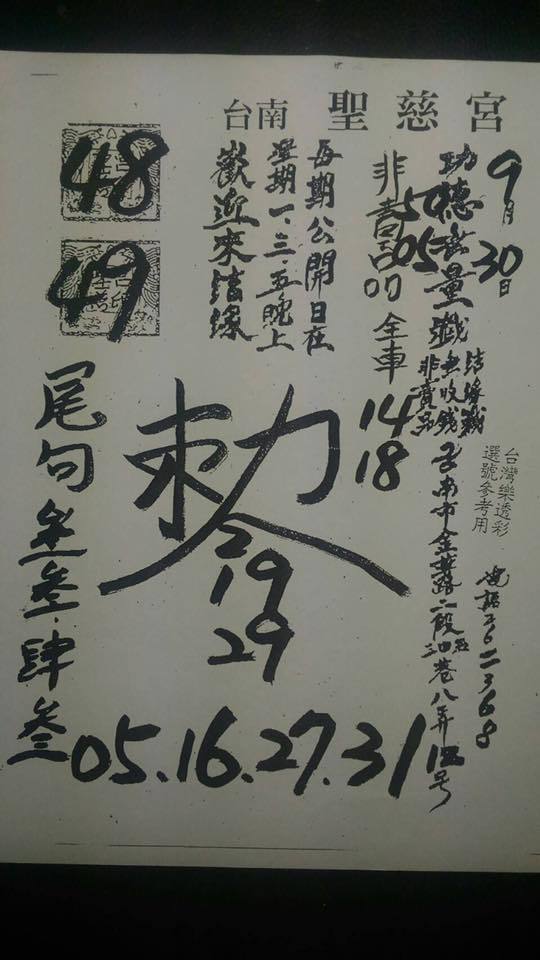 台南 聖慈宮
9月30日
功德無量
結緣
無收錢
非賣品
台南市金華路二段
巷八弄
號
台灣樂透彩
選號參考用
電話2622368
非賣品
50
05
全車
14
18
每期公開日在
星期一、三、五晚上
歡迎來結緣
48
49
敕令
19
29
尾句
叁·肆叁
05.16.27.31